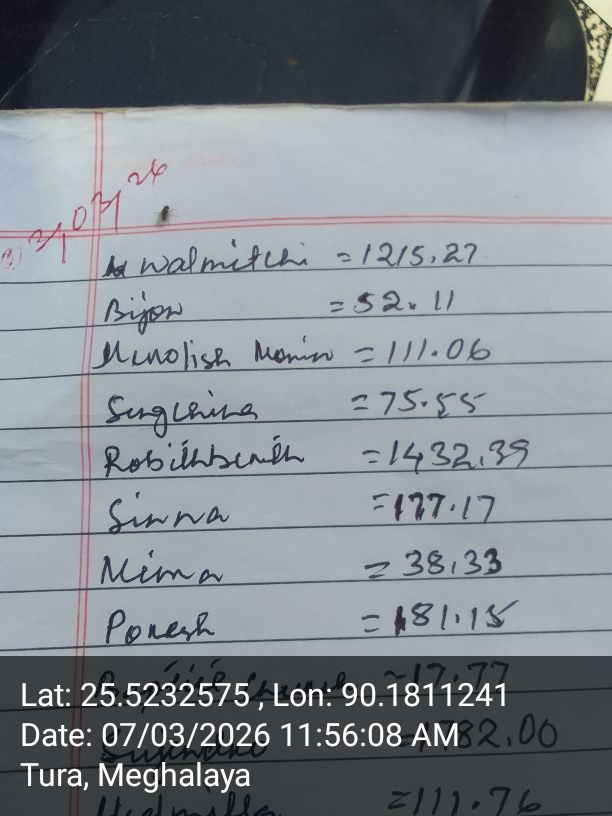 walmitchi = 1215.27
Bijon = 52.11
Menolish Momin = 111.06
Sengchina = 75.55
= 1432.39
Sinna = 177.17
Mima = 38.33
Ponesh = 181.15
= 17.77
782.00
= 111.76
Lat: 25.5232575 , Lon: 90.1811241
Date: 07/03/2026 11:56:08 AM
Tura, Meghalaya